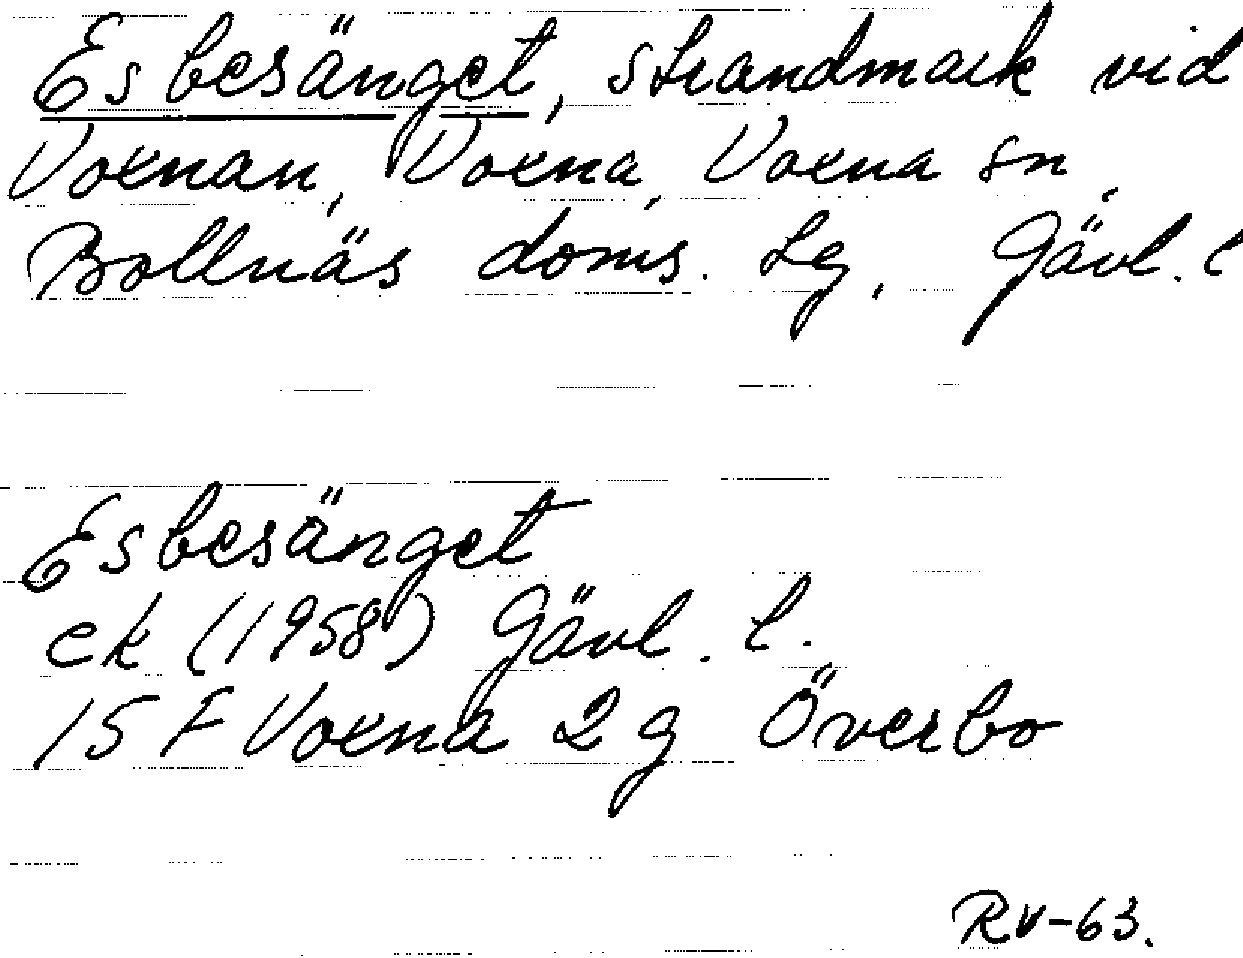 Esbesänget, strandmark vid
Voxnan, Voxna, Voxna sn,
Bollnäs doms. lg, Gävl. l
Esbesänget
ek (1958) Gävl. l.
15 F Voxna 2 g Överbo
RV-63.